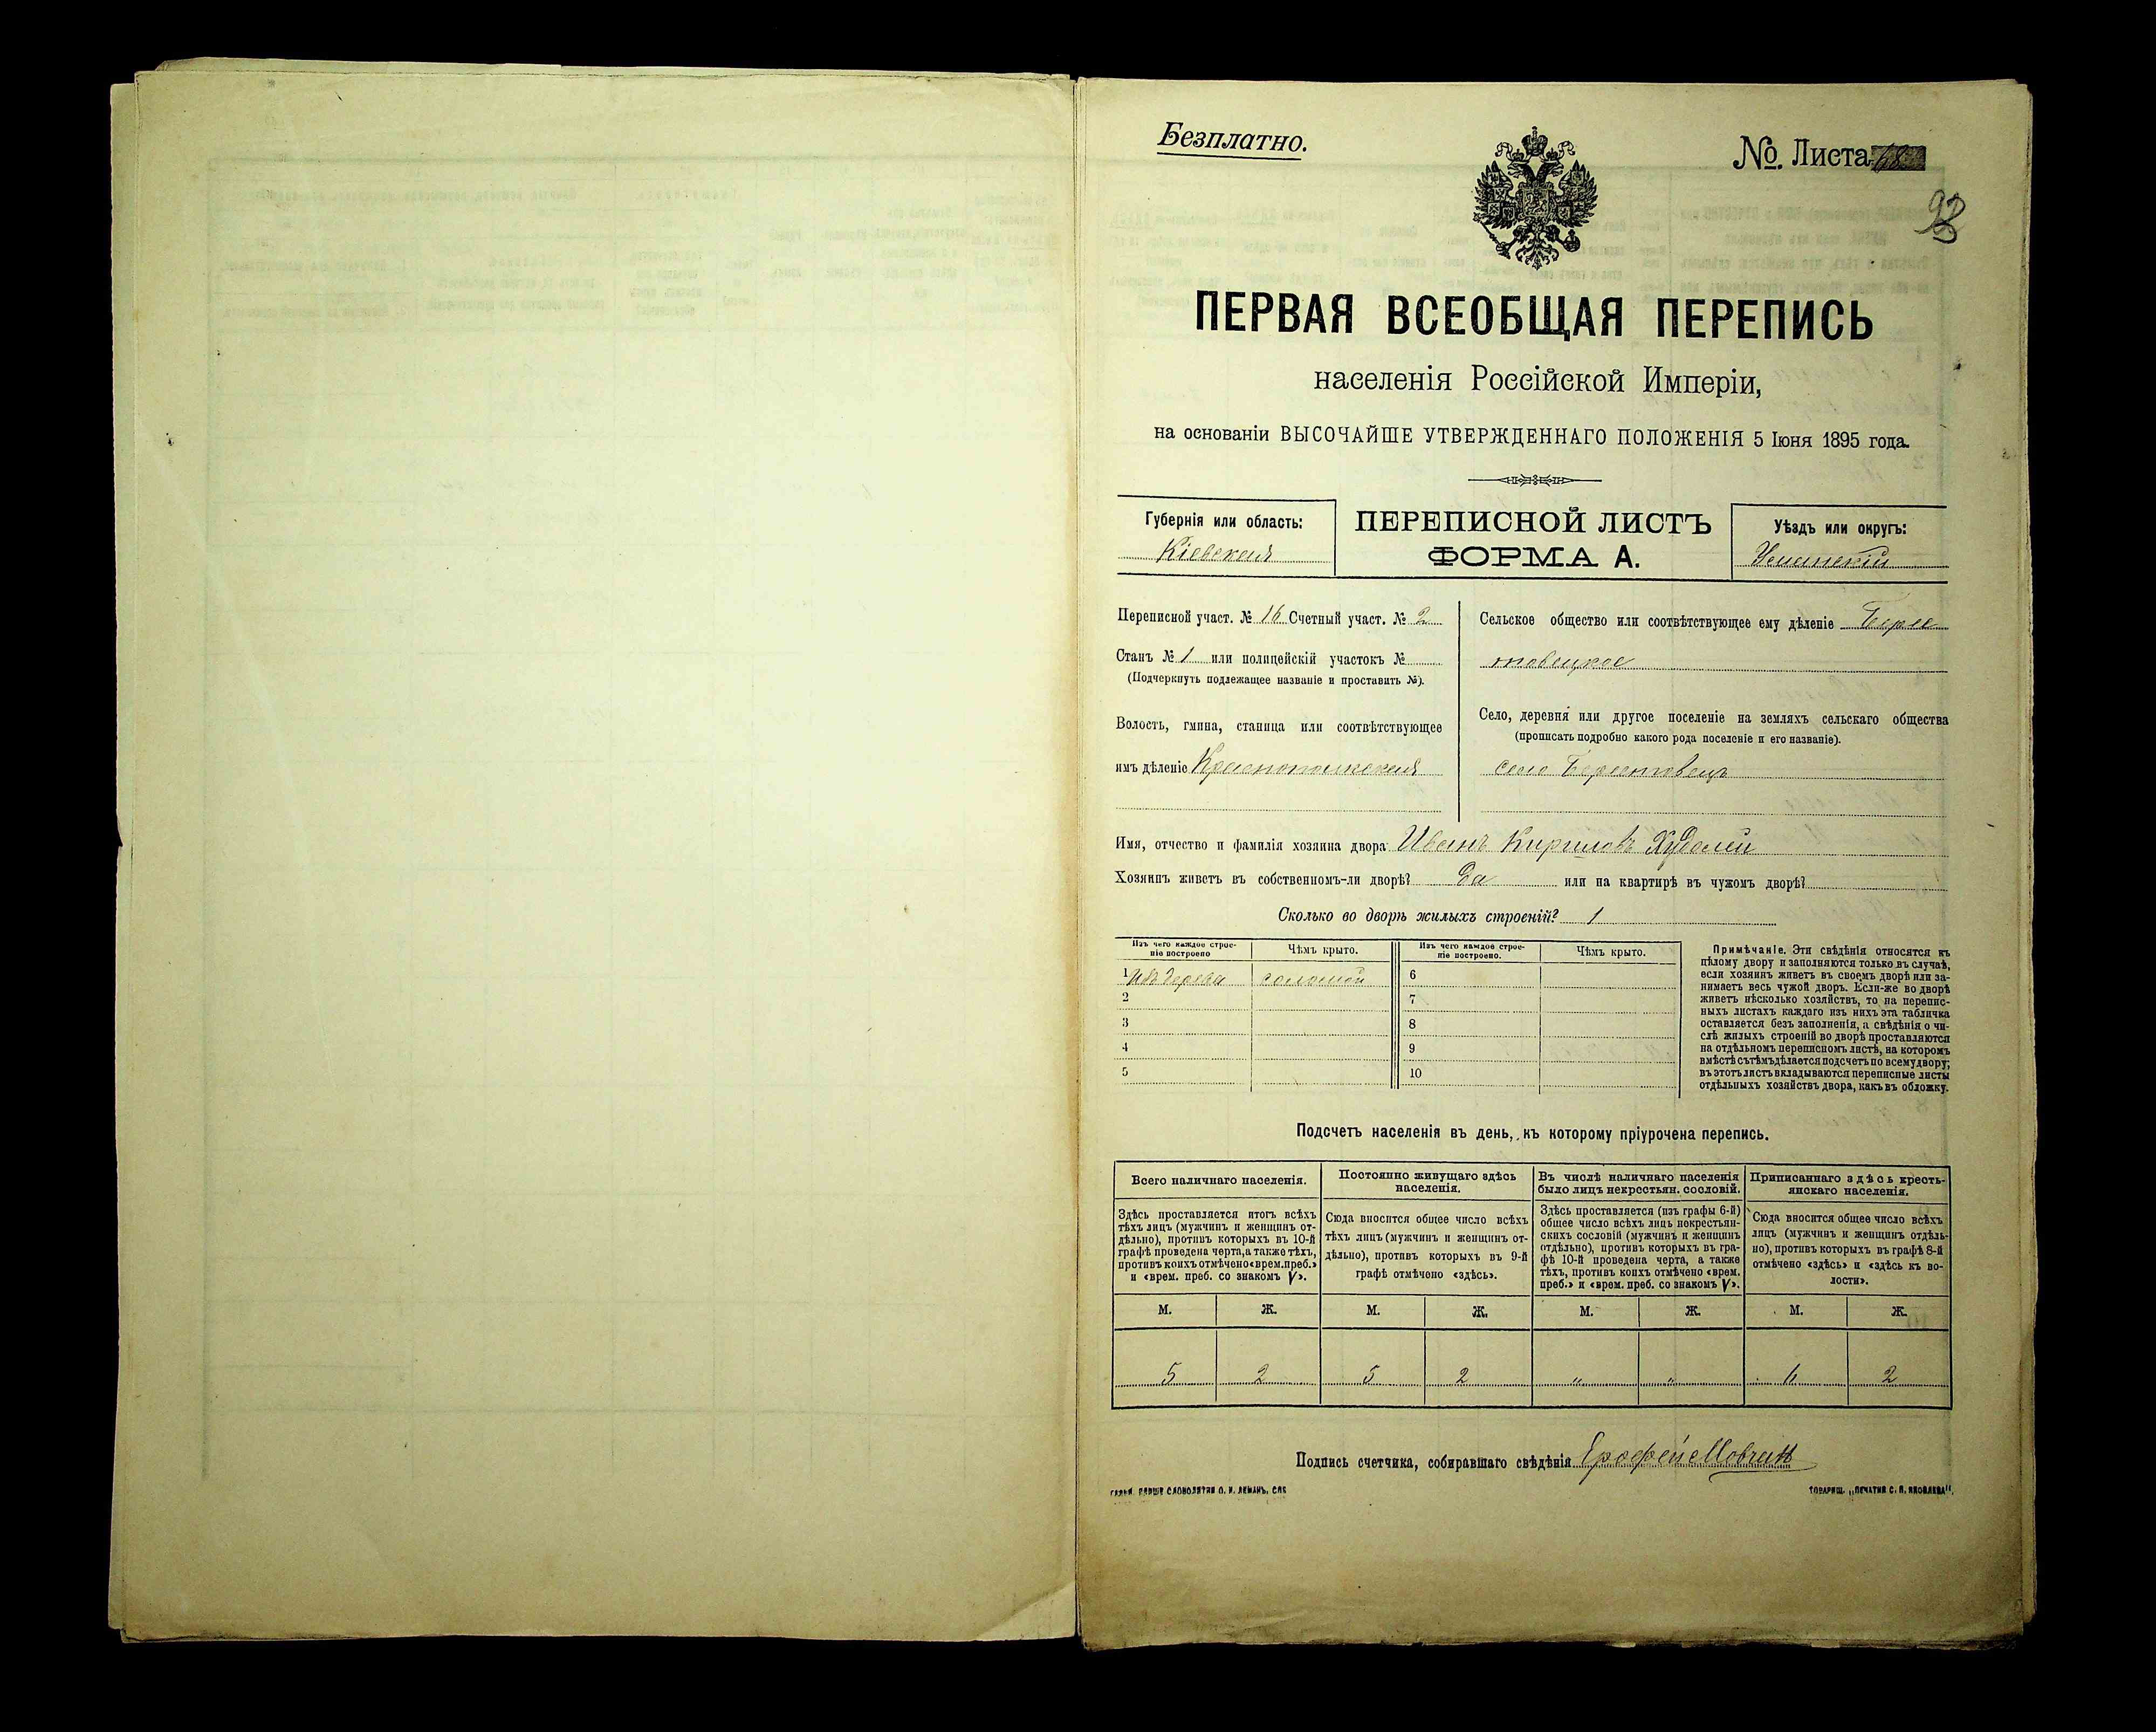 Безплатно.
№. Листа 48
93
ПЕРВАЯ ВСЕОБЩАЯ ПЕРЕПИСЬ
населенія Россійской Имперіи,
на основаніи ВЫСОЧАЙШЕ УТВЕРЖДЕННАГО ПОЛОЖЕНІЯ 5 Іюня 1895 года.
Губернія или область:
Кіевская
ПЕРЕПИСНОЙ ЛИСТЪ
ФОРМА А.
Уѣздъ или округъ:
Уманскій
Переписной участ. № 16 Счетный участ. № 2
Станъ № 1 или полицейскій участокъ №
(Подчеркнуть подлежащее названіе и проставить №).
Волость, гмина, станица или соотвѣтствующее
имъ дѣленіе Краснопольская
Сельское общество или соотвѣтствующее ему дѣленіе Берес
товецкое
Село, деревня или другое поселеніе на земляхъ сельскаго общества
(прописать подробно какого рода поселеніе и его названіе).
село Берестовецъ
Имя, отчество и фамилія хозяина двора Иванъ Кириловъ Худолій
Хозяинъ живетъ въ собственномъ-ли дворѣ? Да или на квартирѣ въ чужомъ дворѣ?
Сколько во дворѣ жилыхъ строеній? 1
Изъ чего каждое строе-
ніе построено
Чѣмъ крыто.
Изъ чего каждое строе-
ніе построено.
Чѣмъ крыто.
1 Изъ дерева соломой 6
2 7
3 8
4 9
5 10
Примѣчаніе. Эти свѣдѣнія относятся къ
цѣлому двору и заполняются только въ случаѣ,
если хозяинъ живетъ въ своемъ дворѣ или за-
нимаетъ весь чужой дворъ. Если-же во дворѣ
живетъ нѣсколько хозяйствъ, то на перепис-
ныхъ листахъ каждаго изъ нихъ эта табличка
оставляется безъ заполненія, а свѣдѣнія о чи-
слѣ жилыхъ строеній во дворѣ проставляются
на отдѣльномъ переписномъ листѣ, на которомъ
вмѣстѣ съ тѣмъ дѣлается подсчетъ по всему двору;
въ этотъ листъ вкладываются переписные листы
отдѣльныхъ хозяйствъ двора, какъ въ обложку.
Подсчетъ населенія въ день, къ которому пріурочена перепись.
Всего наличнаго населенія.
Здѣсь проставляется итогъ всѣхъ
тѣхъ лицъ (мужчинъ и женщинъ от-
дѣльно), противъ которыхъ въ 10-й
графѣ проведена черта, а также тѣхъ,
противъ коихъ отмѣчено «врем. преб.»
и «врем. преб. со знакомъ V».
Постоянно живущаго здѣсь
населенія.
Сюда вносится общее число всѣхъ
тѣхъ лицъ (мужчинъ и женщинъ от-
дѣльно), противъ которыхъ въ 9-й
графѣ отмѣчено «здѣсь».
Въ числѣ наличнаго населенія
было лицъ некрестьян. сословій.
Здѣсь проставляется (изъ графы 6-й)
общее число всѣхъ лицъ некрестьян-
скихъ сословій (мужчинъ и женщинъ
отдѣльно), противъ которыхъ въ гра-
фѣ 10-й проведена черта, а также
тѣхъ, противъ коихъ отмѣчено «врем.
преб.» и «врем. преб. со знакомъ V».
Приписаннаго здѣсь кресть-
янскаго населенія.
Сюда вносится общее число всѣхъ
лицъ (мужчинъ и женщинъ отдѣль-
но), противъ которыхъ въ графѣ 8-й
отмѣчено «здѣсь» и «здѣсь къ во-
лости».
М. Ж. М. Ж. М. Ж. М. Ж.
5 2 5 2 " " 6 2
Подпись счетчика, собиравшаго свѣдѣнія Ерофей Мовчан
ТОВАРИЩ. „ПЕЧАТНЯ С. П. ЯКОВЛЕВА".